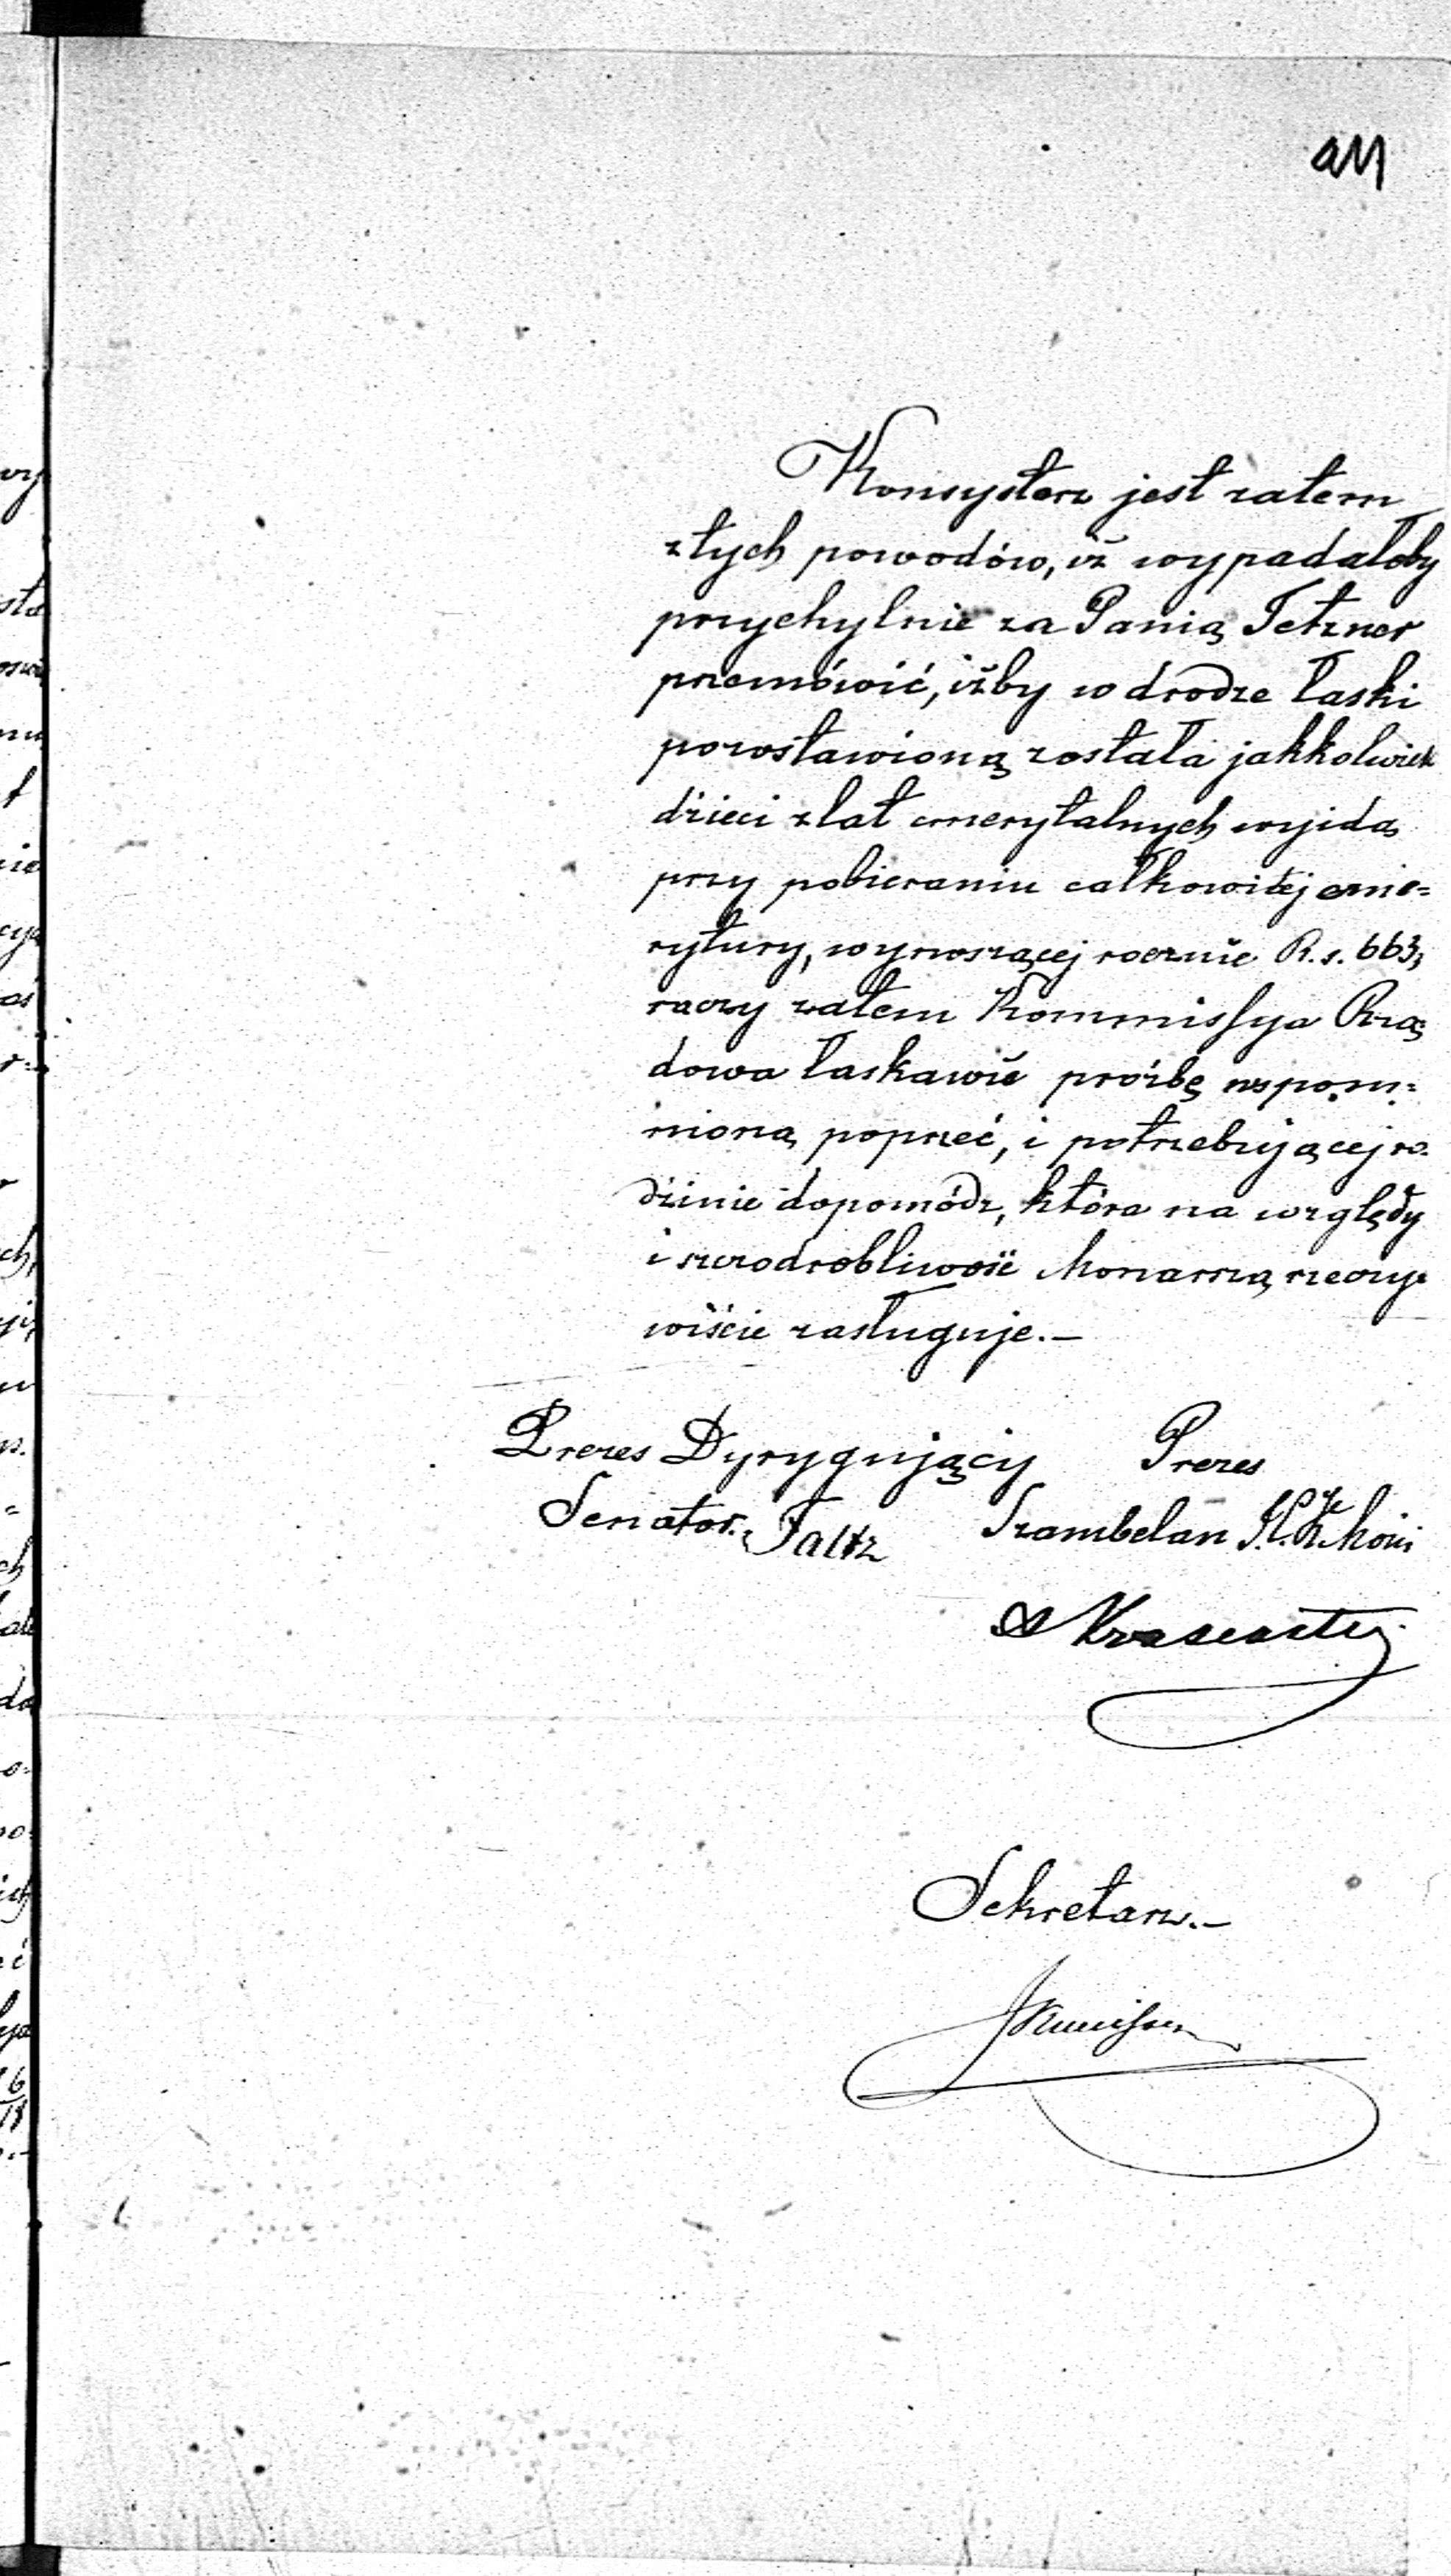 Konsystorz jest zatem
z tych powodów, iż wypadałoby
przychylnie za Panią Tetzner
przemówić, iżby w drodze łaski
pozostawioną została jakkolwiek
dzieci z lat emerytalnych wyidą
przy pobieraniu całkowitéj eme=
rytury, wynoszącej rocznie R.s. 663,
raczy zatem Kommissya Rzą
dowa łaskawie prośbę wspom=
nioną poprzeć, i potrzebującej ro=
dzinie dopomódz, która na względy
i szczodrobliwość Monarszą rzeczy=
wiście zasługuje.—
Prezes Dyrygujący Prezes
Senator Faltz Szambelan
Sekretarz.—